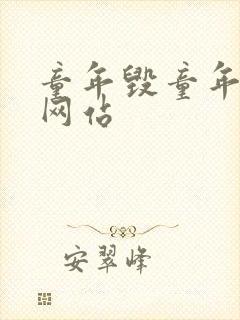 童年毁童年
网佔
安翠峰